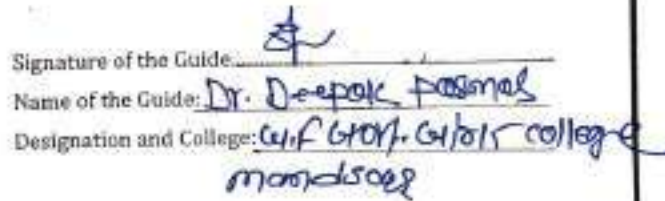 Signature of the Guide
Name of the Guide: Dr. Deepak
Designation and College: college
mandsaur